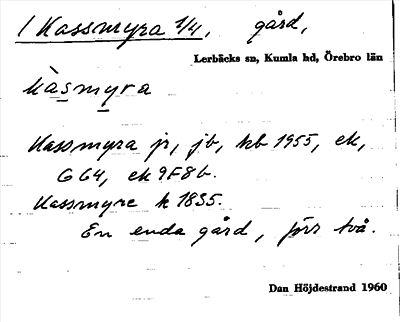 1 Kassmyra 2/4, gård,
Lerbäcks sn, Kumla hd, Örebro län
kàsmyra
Kassmyra jr, jb, hb 1955, ek,
G G4, ek 9F8b.
Kassmyre k 1835.
En enda gård, förr två.
Dan Höjdestrand 1960